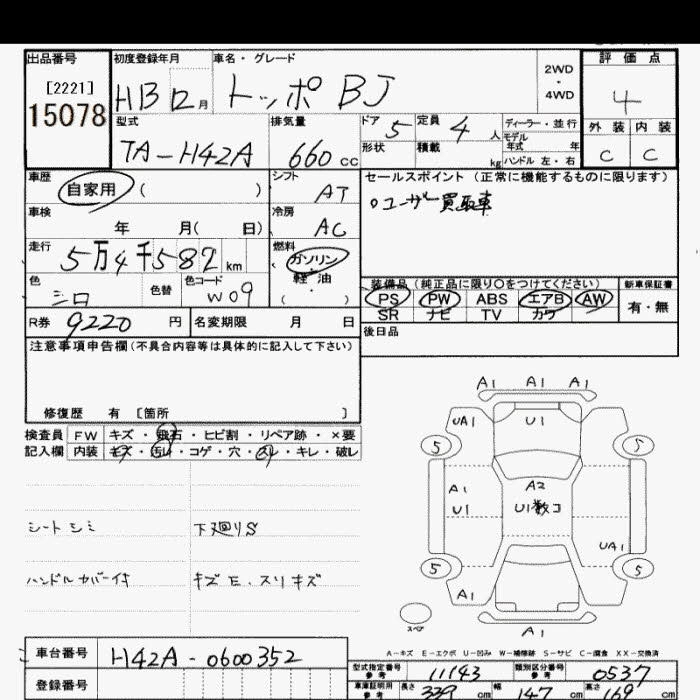 出品番号
[2221]
15078
初度登録年月 車名・グレード
H13 12月 トッポ BJ
2WD
・
4WD
評価点
4
外装 内装
C C
型式 排気量
TA-H42A 660 CC
ドア 5 定員 4 人
形状 積載 kg
ディーラー・並行
モデル
年式 年
ハンドル 左・右
車歴 自家用 ( )
シフト AT
車検 年 月( 日)
冷房 AC
走行 5万4千582 km
燃料 ガソリン・軽油
( )
色 シロ 色替 色コード W09
R券 9220 円 名変期限 月 日
セールスポイント (正常に機能するものに限ります)
○ユーザー買取車
装備品 (純正品に限り○をつけてください) 新車保証書
PS PW ABS エアB AW 有・無
SR ナビ TV カワ
後日品
注意事項申告欄(不具合内容等は具体的に記入して下さい)
修復歴 有 [箇所 ]
検査員 FW キズ・飛石・ヒビ割・リペア跡・×要
記入欄 内装 キズ・汚れ・コゲ・穴・スレ・キレ・破レ
シートシミ 下廻りS
ハンドルカバー付 キズ E、スリキズ
A1 A1 A1
UA1 U1
5 5
A1 A2
U1 U1数コ
UA1
5 5
A1
スペア A1
A-キズ E-エクボ U-凹み W-補修跡 S-サビ C-腐食 XX-交換済
車台番号 H42A-0600352
登録番号
型式指定番号 参考 11143 類別区分番号 参考 0537
車庫証明用 参考 長さ 339 cm 幅 147 cm 高さ 169 cm